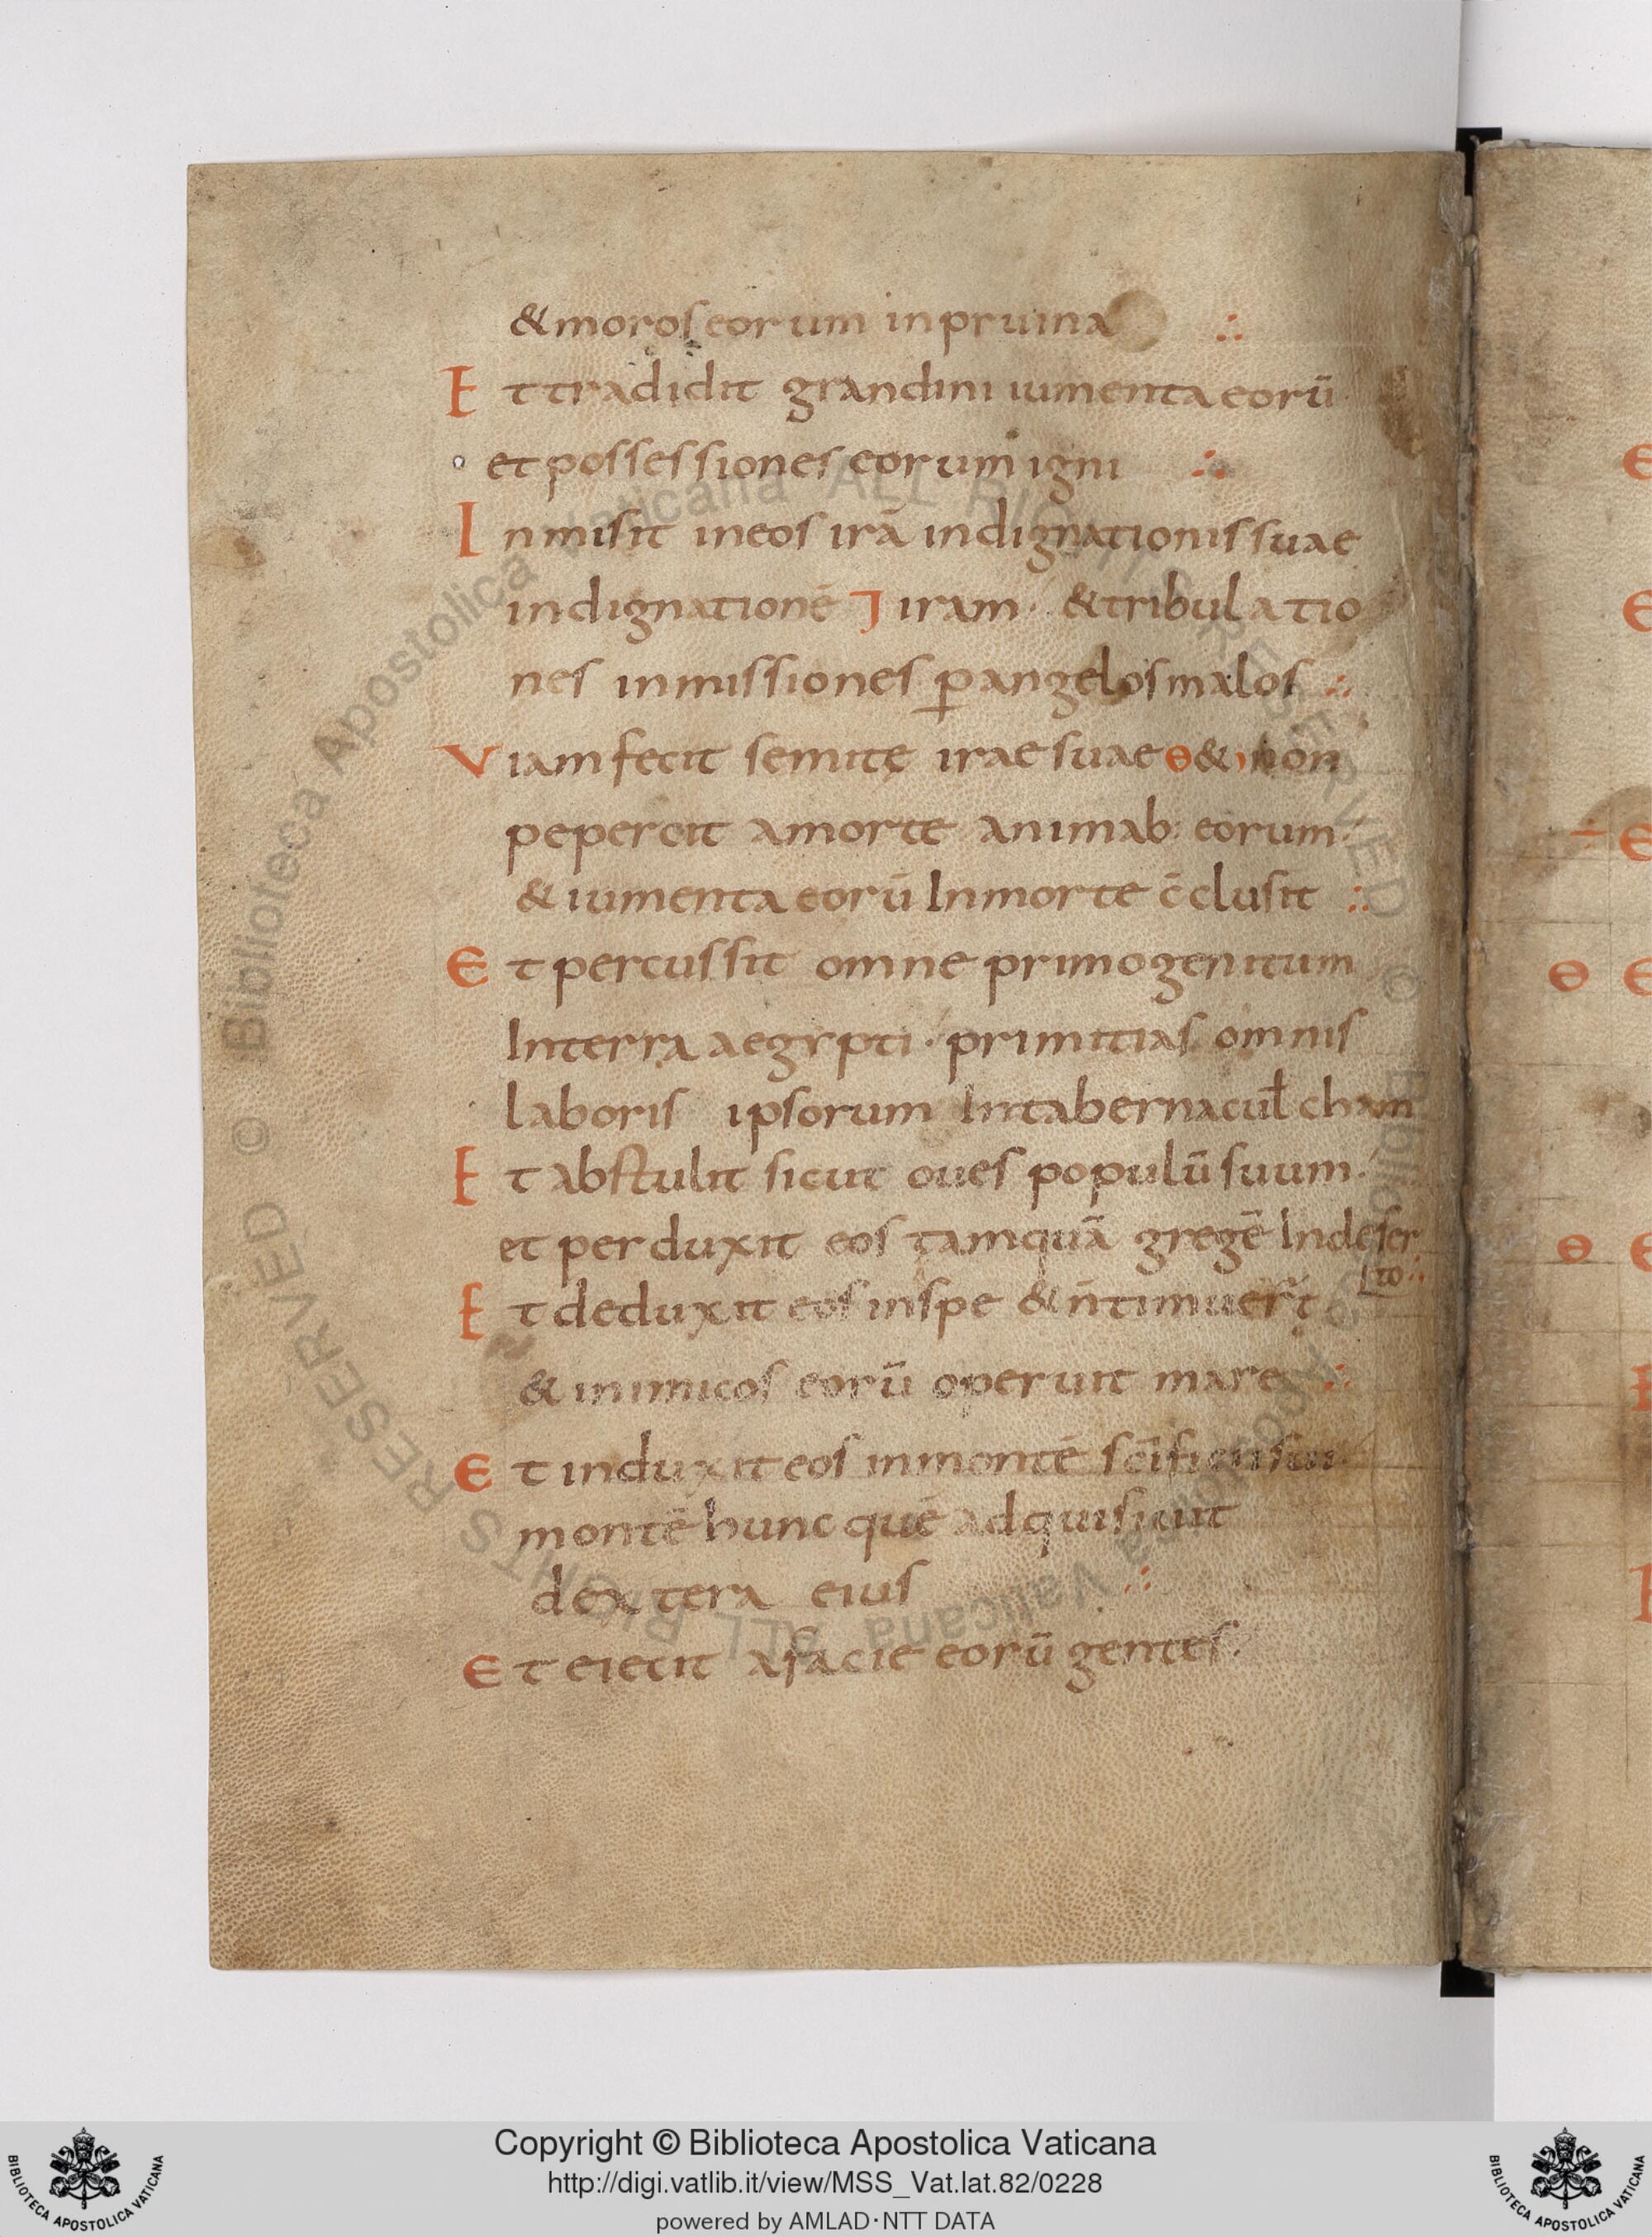 & moros eorum in pruina ∴
Et tradidit grandini iumenta eorū
et possessiones eorum igni ∴
Inmisit in eos irā indignationis suae
indignationē ⁊ iram · & tribulatio
nes inmissiones ꝑ angelos malos ∴
Viam fecit semitę irae suae & non
pepercit a morte animab: eorum
& iumenta eorū In morte c̄clusit ∴
Et percussit omne primogenitum
In terra aegypti · primitias omnis
laboris ipsorum In tabernacul̄ cham
Et abstulit sicut oues populū suum ·
et perduxit eos tamquā gregē In deser
to ∴
Et deduxit eos in spe & n̄ timuer̄t
& inimicos eorū operuit mare ∴
Et induxit eos in montē sc̄ificationis
montē hunc quē adquisiuit
dextera eius ∴
Et eiecit a facie eorū gentes ·
© Biblioteca Apostolica Vaticana ALL RIGHTS RESERVED
© Biblioteca Apostolica Vaticana ALL RIGHTS RESERVED
Copyright © Biblioteca Apostolica Vaticana
http://digi.vatlib.it/view/MSS_Vat.lat.82/0228
powered by AMLAD·NTT DATA
BIBLIOTECA APOSTOLICA VATICANA
BIBLIOTECA APOSTOLICA VATICANA